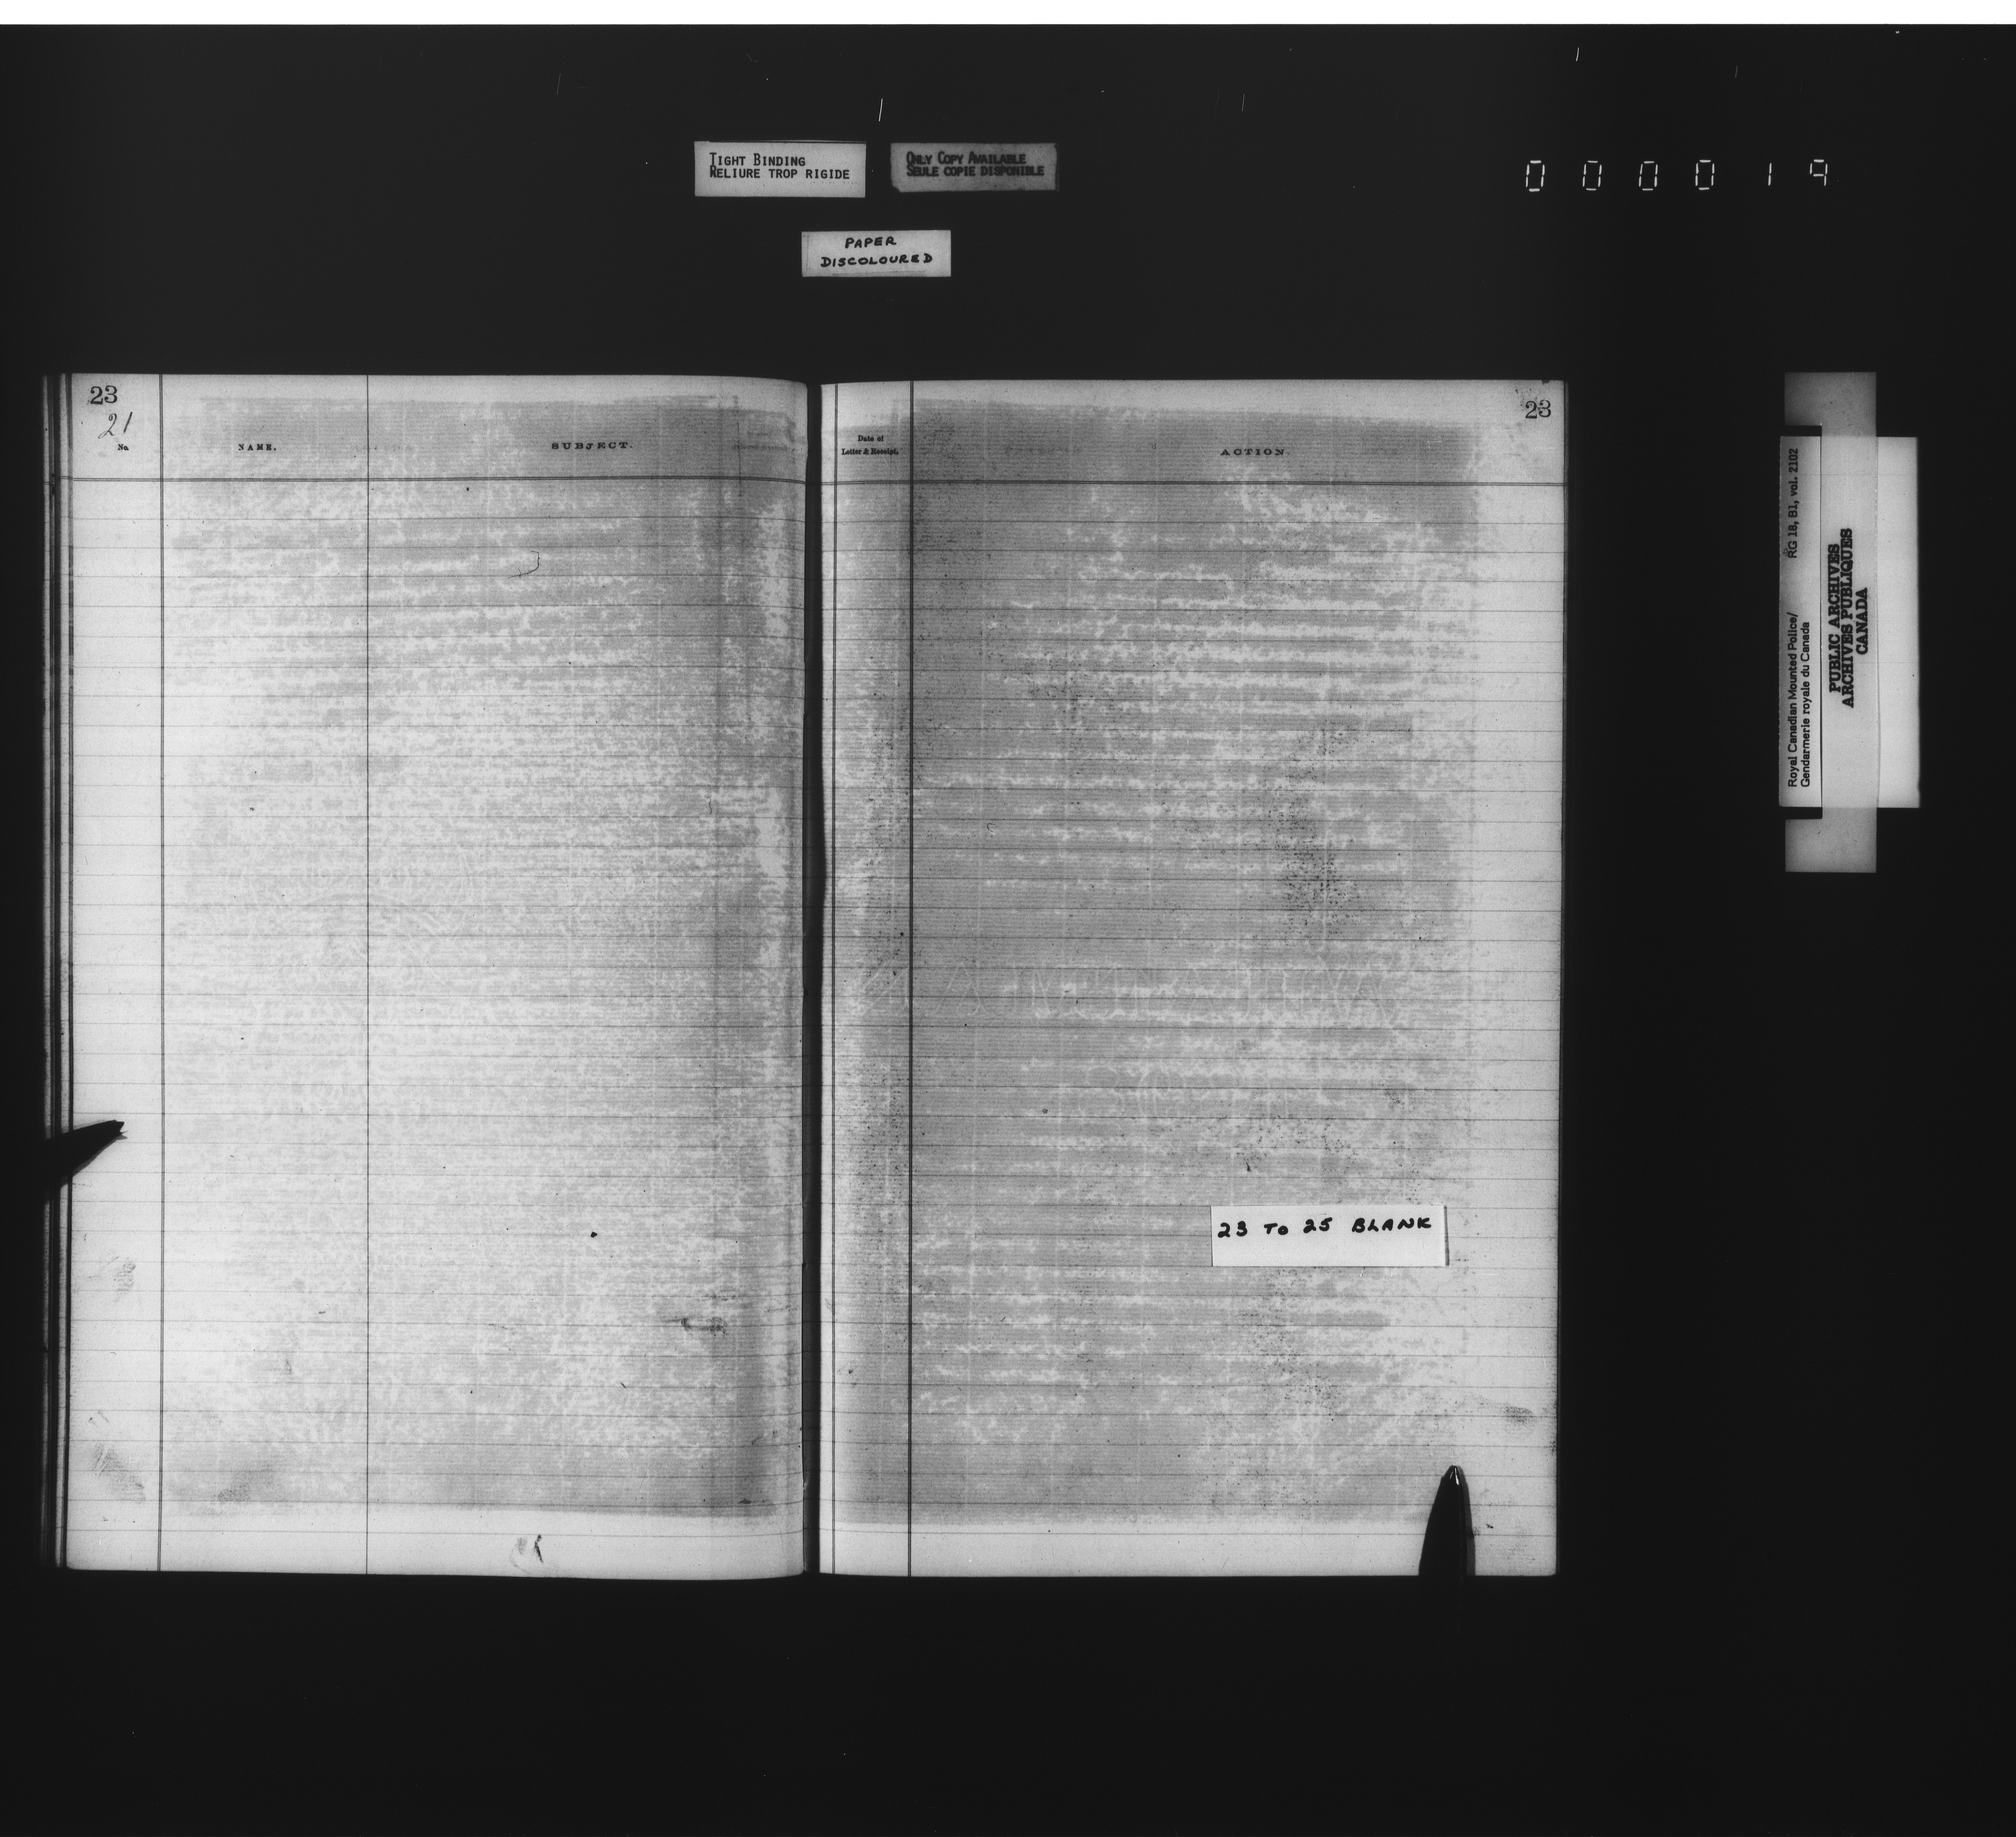 TIGHT BINDING
RELIURE TROP RIGIDE
ONLY COPY AVAILABLE
SEULE COPIE DISPONIBLE
000019
PAPER
DISCOLOURED
23
21
No.
NAME.
SUBJECT.
23
Date of
Letter & Receipt.
ACTION.
23 TO 25 BLANK
Royal Canadian Mounted Police/ RG 18, B1, vol. 2102
Gendarmerie royale du Canada
PUBLIC ARCHIVES
ARCHIVES PUBLIQUES
CANADA